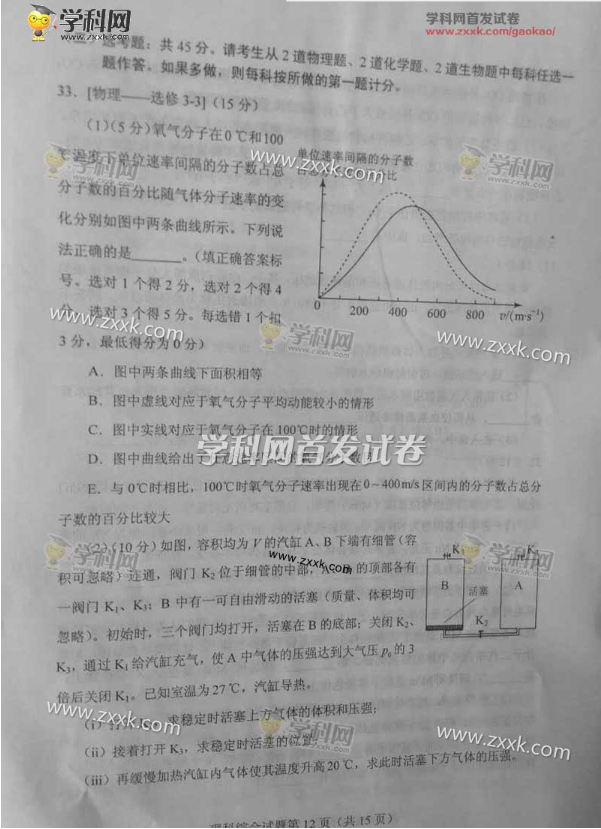 学科网
www.zxxk.com
学科网首发试卷
www.zxxk.com/gaokao/
选考题：共 45 分。请考生从 2 道物理题、2 道化学题、2 道生物题中每科任选一
题作答。如果多做，则每科按所做的第一题计分。
33．[物理——选修 3-3]（15 分）
（1）（5 分）氧气分子在 0℃和 100
℃温度下单位速率间隔的分子数占总
分子数的百分比随气体分子速率的变
化分别如图中两条曲线所示。下列说
法正确的是______。（填正确答案标
号。选对 1 个得 2 分，选对 2 个得 4
分，选对 3 个得 5 分。每选错 1 个扣
3 分，最低得分为 0 分）
单位速率间隔的分子数
比
0 200 400 600 800 v/(m·s⁻¹)
A．图中两条曲线下面积相等
B．图中虚线对应于氧气分子平均动能较小的情形
C．图中实线对应于氧气分子在 100℃时的情形
D．图中曲线给出了
E．与 0℃时相比，100℃时氧气分子速率出现在 0~400 m/s 区间内的分子数占总分
子数的百分比较大
（2）（10 分）如图，容积均为 V 的汽缸 A、B 下端有细管（容
积可忽略）连通，阀门 K₂ 位于细管的中部，A、B 的顶部各有
一阀门 K₁、K₃；B 中有一可自由滑动的活塞（质量、体积均可
忽略）。初始时，三个阀门均打开，活塞在 B 的底部；关闭 K₂、
K₃，通过 K₁ 给汽缸充气，使 A 中气体的压强达到大气压 p₀ 的 3
倍后关闭 K₁。已知室温为 27℃，汽缸导热。
B
A
活塞
K₂
（i）打开 K₂，求稳定时活塞上方气体的体积和压强；
（ii）接着打开 K₃，求稳定时活塞的位置；
（iii）再缓慢加热汽缸内气体使其温度升高 20℃，求此时活塞下方气体的压强。
理科综合试题第 12 页（共 15 页）
学科网首发试卷
www.zxxk.com